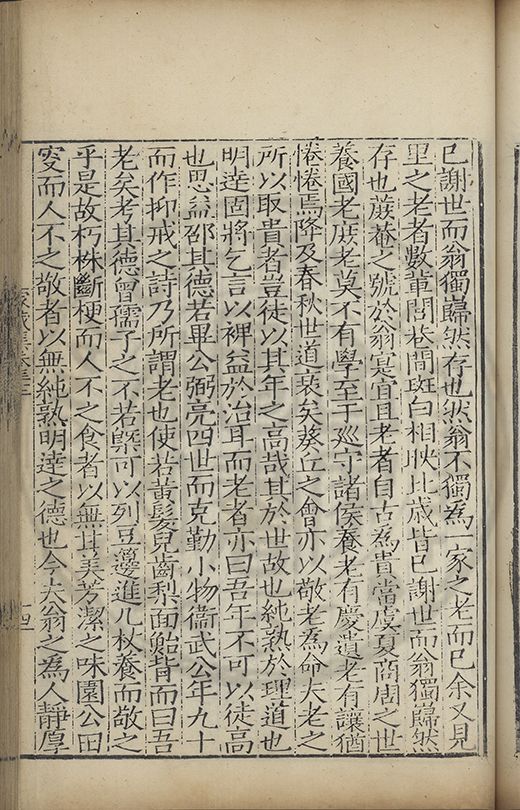 已謝世而翁獨巋然存也然翁不獨為一家之老而已余又見
里之老者數軰閭巷間斑白相映比歳皆已謝世而翁獨巋然
存也蔗菴之號於翁寔宜且老者自古為貴當虞夏商周之世
養國老庻老莫不有學至于廵守諸侯養老有慶遺老有讓猶
惓惓焉降及春秋世道衰矣葵丘之㑹亦以敬老為命夫老之
所以取貴者豈徒以其年之高哉其於世故也純熟於理道也
明逹固將乞言以裨益於治耳而老者亦曰吾年不可以徒高
也思益邵其德若畢公弼亮四世而克勤小物衞武公年九十
而作抑戒之詩乃所謂老也使若黃髪兒齒梨面鮐背而曰吾
老矣考其德曾孺子之不若槩可以列豆籩進几杖養而敬之
乎是故朽株斷梗而人不之食者以無甘美芳潔之味園公田
叟而人不之敬者以無純熟明逹之德也今夫翁之為人靜厚